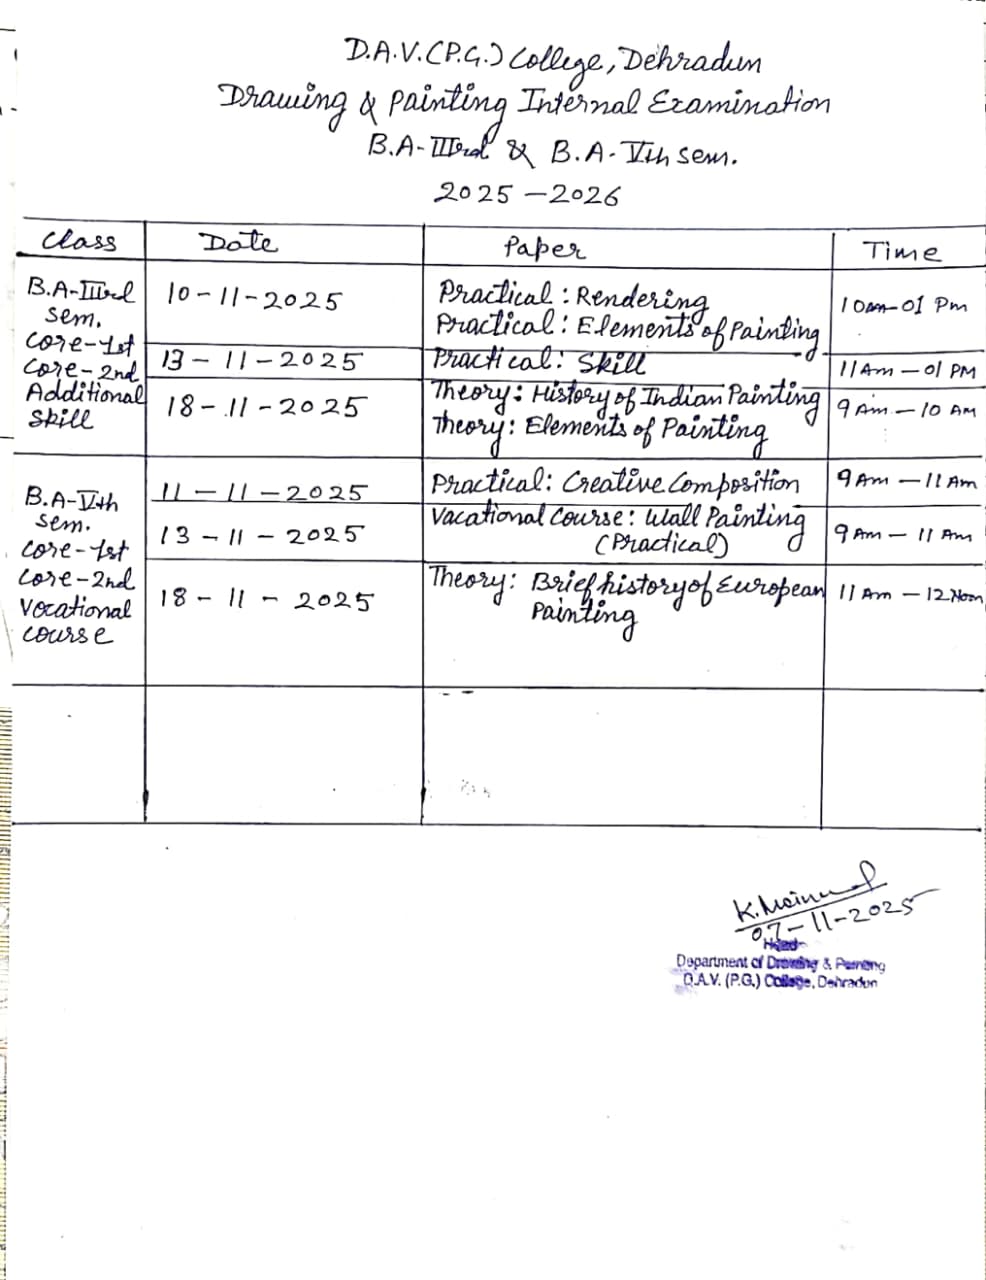 D.A.V.(P.G.) College, Dehradun
Drawing & Painting Internal Examination
B.A-IIIrd & B.A-Vth sem.
2025-2026
Class Date Paper Time
B.A-IIIrd sem. Core-1st Core-2nd Additional Skill
10-11-2025 Practical : Rendering 10am-01 Pm
Practical : Elements of Painting
13-11-2025 Practical: Skill 11Am-01 PM
18-11-2025 Theory: History of Indian Painting 9 Am-10 AM
Theory: Elements of Painting
B.A-Vth sem. Core-1st Core-2nd Vocational course
11-11-2025 Practical: Creative Composition 9 Am-11 Am
13-11-2025 Vacational Course: Wall Painting 9 Am-11 Am
(Practical)
18-11-2025 Theory: Brief history of European 11 Am-12 Noon
Painting
07-11-2025
Head
Department of Drawing & Painting
D.A.V. (P.G.) College, Dehradun